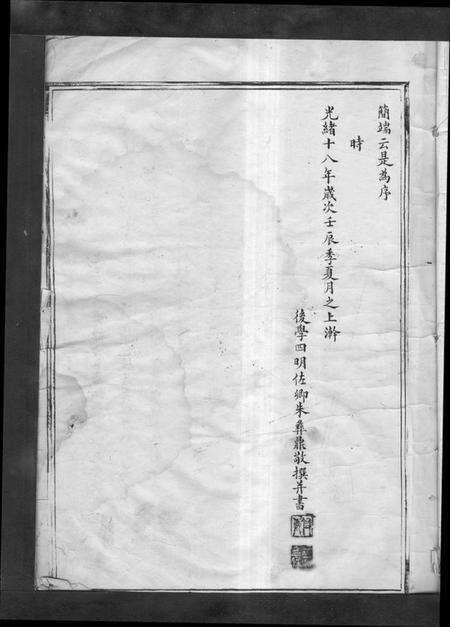 簡端云是為序
時
光緒十八年歲次壬辰季夏月之上澣
後學四明佐卿朱彝鼎敬撰并書